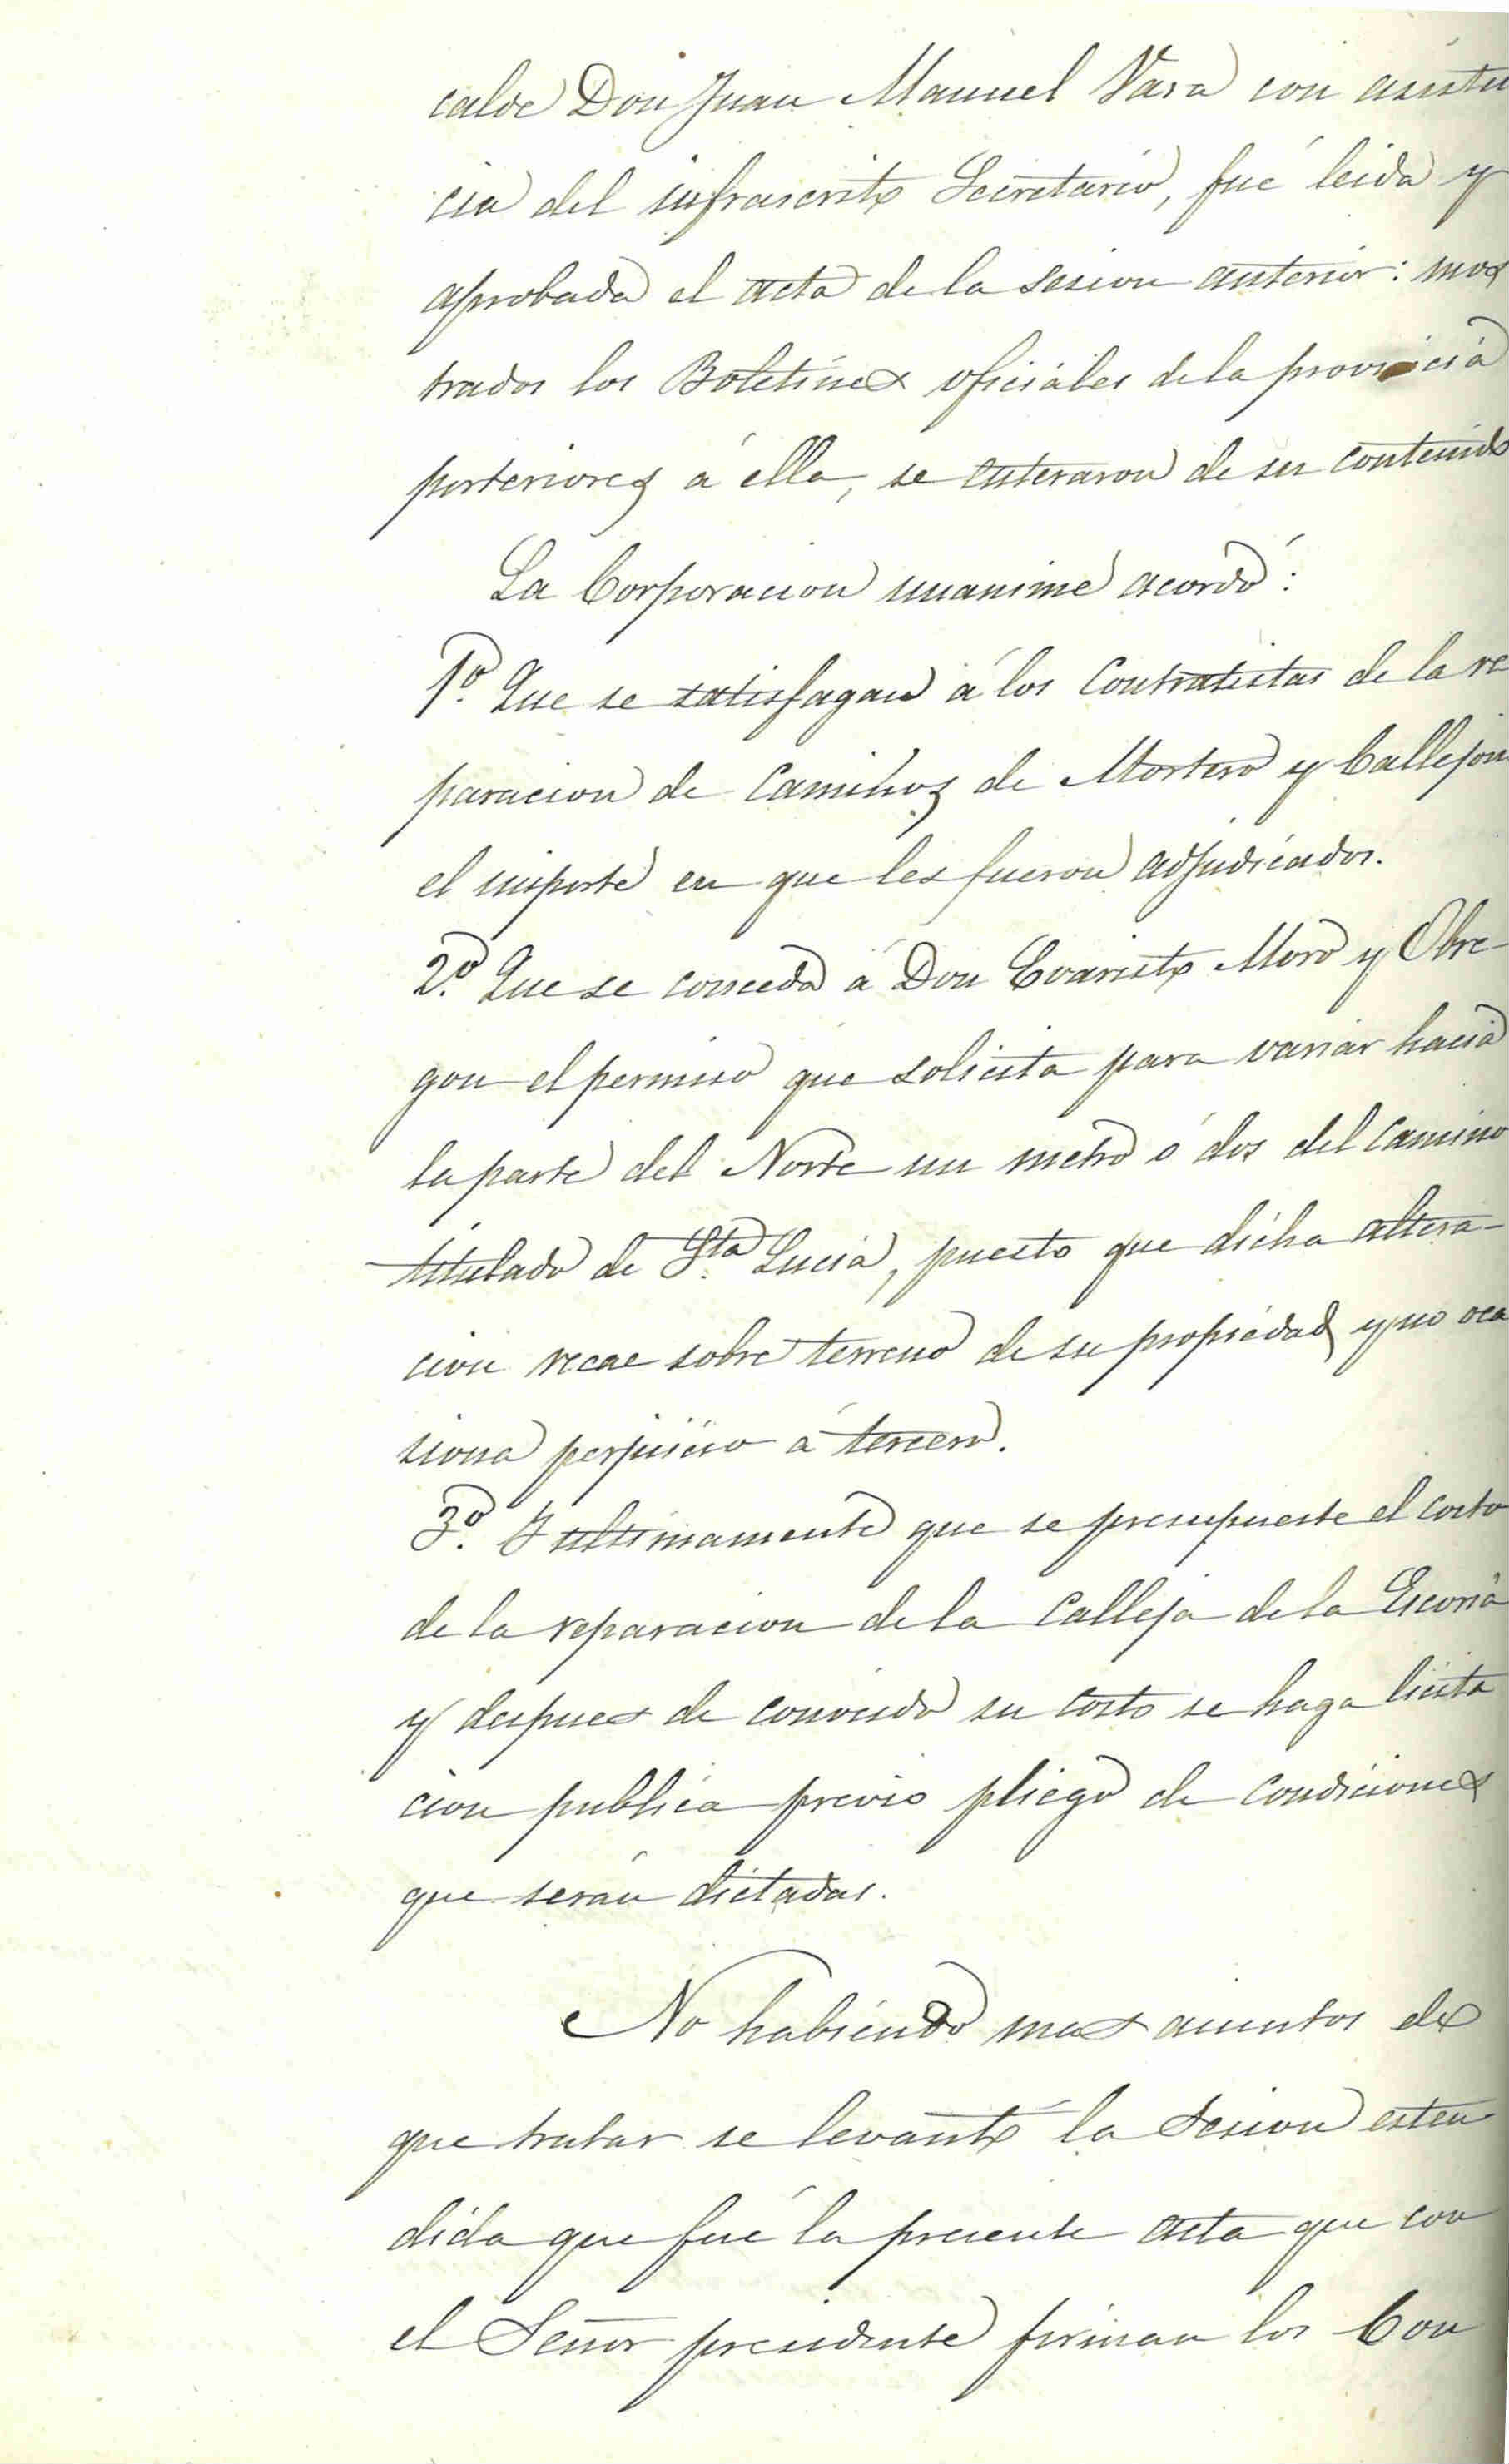 calde Don Juan Manuel Vara con asisten
cia del infrascrito Secretario, fué leida y
aprobada el acta de la sesion anterior: mos
trados los Boletines oficiales de la provincia
posteriores á ella, se enteraron de su contenido
La Corporacion unanime acordó:
1.º Que se satisfagan á los Contratistas de la re
paracion de Caminos de Mortero y Callejon
el importe en que les fueron adjudicados.
2.º Que se conceda á Don Evaristo Moro y Obre-
gon el permiso que solicita para variar hacia
la parte del Norte un metro ó dos del Camino
titulado de Sta. Lucia, puesto que dicha altera-
cion recae sobre terreno de su propiedad y no oca
siona perjuicio á tercero.
3.º Y ultimamente que se presupueste el costo
de la reparacion de la Calleja de la Escoria
y despues de conocido su costo se haga licita
cion publica previo pliego de condiciones
que serán dictadas.
No habiendo mas asuntos de
que tratar se levantó la Sesion esten
dida que fué la presente acta que con
el Señor presidente firman los Con